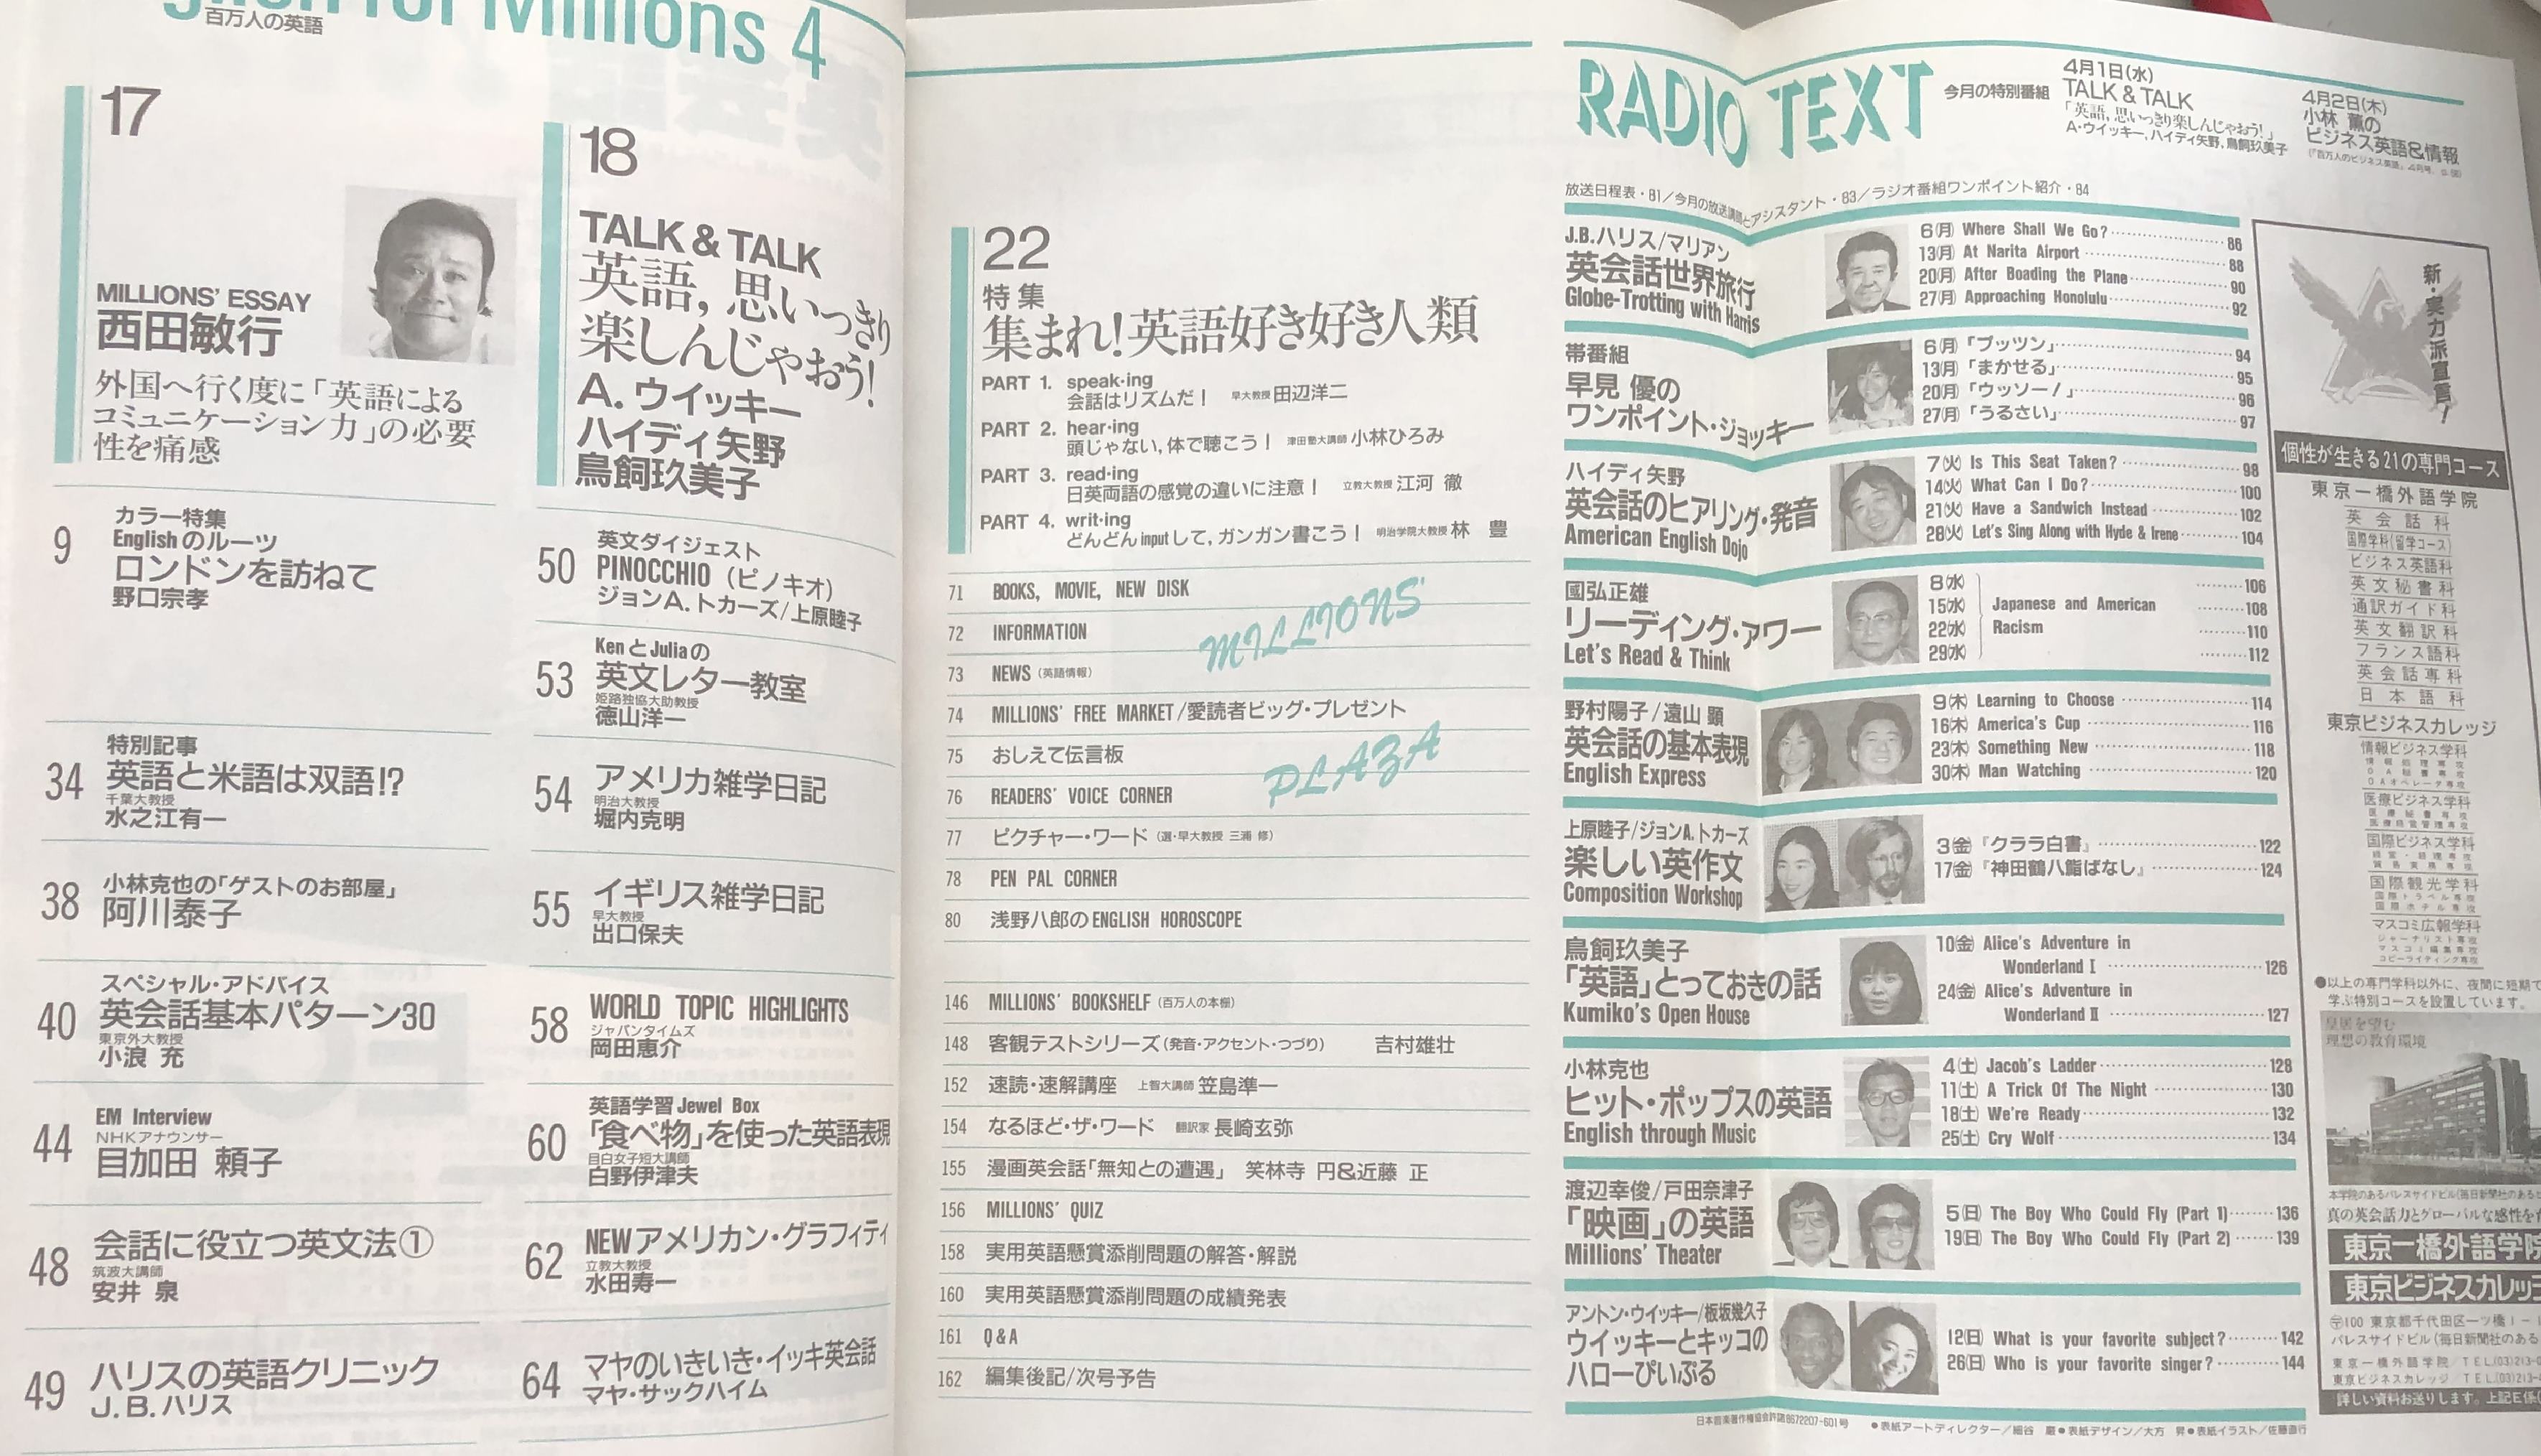 for Millions 4
百万人の英語
17
MILLIONS' ESSAY
西田敏行
外国へ行く度に「英語による
コミュニケーション力」の必要
性を痛感
18
TALK & TALK
英語，思いっきり
楽しんじゃおう！
A．ウイッキー
ハイディ矢野
鳥飼玖美子
9
カラー特集
Englishのルーツ
ロンドンを訪ねて
野口宗孝
34
特別記事
英語と米語は双語!?
千葉大教授
水之江有一
38
小林克也の「ゲストのお部屋」
阿川泰子
40
スペシャル・アドバイス
英会話基本パターン30
東京外大教授
小浪 充
44
EM Interview
NHKアナウンサー
目加田 頼子
48
会話に役立つ英文法①
筑波大講師
安井 泉
49
ハリスの英語クリニック
J.B.ハリス
50
英文ダイジェスト
PINOCCHIO（ピノキオ）
ジョンA.トカーズ/上原睦子
53
KenとJuliaの
英文レター教室
姫路独協大助教授
徳山洋一
54
アメリカ雑学日記
明治大教授
堀内克明
55
イギリス雑学日記
早大教授
出口保夫
58
WORLD TOPIC HIGHLIGHTS
ジャパンタイムズ
岡田恵介
60
英語学習 Jewel Box
「食べ物」を使った英語表現
目白女子短大講師
白野伊津夫
62
NEWアメリカン・グラフィティ
立教大教授
水田寿一
64
マヤのいきいき・イッキ英会話
マヤ・サックハイム
22
特集
集まれ！英語好き好き人類
PART 1. speak・ing
会話はリズムだ！ 早大教授 田辺洋二
PART 2. hear・ing
頭じゃない，体で聴こう！ 津田塾大講師 小林ひろみ
PART 3. read・ing
日英両語の感覚の違いに注意！ 立教大教授 江河 徹
PART 4. writ・ing
どんどんinputして，ガンガン書こう！ 明治学院大教授 林 豊
MILLIONS'
PLAZA
71 BOOKS, MOVIE, NEW DISK
72 INFORMATION
73 NEWS（英語情報）
74 MILLIONS' FREE MARKET/愛読者ビッグ・プレゼント
75 おしえて伝言板
76 READERS' VOICE CORNER
77 ピクチャー・ワード（選・早大教授 三浦 修）
78 PEN PAL CORNER
80 浅野八郎のENGLISH HOROSCOPE
146 MILLIONS' BOOKSHELF（百万人の本棚）
148 客観テストシリーズ（発音・アクセント・つづり） 吉村雄壮
152 速読・速解講座 上智大講師 笠島準一
154 なるほど・ザ・ワード 翻訳家 長崎玄弥
155 漫画英会話「無知との遭遇」 笑林寺 円&近藤 正
156 MILLIONS' QUIZ
158 実用英語懸賞添削問題の解答・解説
160 実用英語懸賞添削問題の成績発表
161 Q&A
162 編集後記/次号予告
RADIO TEXT
今月の特別番組
4月1日(水)
TALK & TALK
「英語，思いっきり楽しんじゃおう！」
A・ウイッキー，ハイディ矢野，鳥飼玖美子
4月2日(木)
小林 薫の
ビジネス英語&情報
放送日程表・81／今月の放送講師とアシスタント・83／ラジオ番組ワンポイント紹介・84
J.B.ハリス/マリアン
英会話世界旅行
Globe-Trotting with Harris
6(月) Where Shall We Go? 86
13(月) At Narita Airport 88
20(月) After Boading the Plane 90
27(月) Approaching Honolulu 92
帯番組
早見 優の
ワンポイント・ジョッキー
6(月)「プッツン」 94
13(月)「まかせる」 95
20(月)「ウッソー！」 96
27(月)「うるさい」 97
ハイディ矢野
英会話のヒアリング・発音
American English Dojo
7(火) Is This Seat Taken? 98
14(火) What Can I Do? 100
21(火) Have a Sandwich Instead 102
28(火) Let's Sing Along with Hyde & Irene 104
國弘正雄
リーディング・アワー
Let's Read & Think
8(水) 106
15(水) Japanese and American 108
22(水) Racism 110
29(水) 112
野村陽子/遠山 顕
英会話の基本表現
English Express
9(木) Learning to Choose 114
16(木) America's Cup 116
23(木) Something New 118
30(木) Man Watching 120
上原睦子/ジョンA.トカーズ
楽しい英作文
Composition Workshop
3(金)『クララ白書』 122
17(金)『神田鶴八鮨ばなし』 124
鳥飼玖美子
「英語」とっておきの話
Kumiko's Open House
10(金) Alice's Adventure in
Wonderland I 126
24(金) Alice's Adventure in
Wonderland II 127
小林克也
ヒット・ポップスの英語
English through Music
4(土) Jacob's Ladder 128
11(土) A Trick Of The Night 130
18(土) We're Ready 132
25(土) Cry Wolf 134
渡辺幸俊/戸田奈津子
「映画」の英語
Millions' Theater
5(日) The Boy Who Could Fly (Part 1) 136
19(日) The Boy Who Could Fly (Part 2) 139
アントン・ウイッキー/板坂幾久子
ウイッキーとキッコの
ハローぴいぷる
12(日) What is your favorite subject? 142
26(日) Who is your favorite singer? 144
日本音楽著作権協会許諾8672207-601号
●表紙アートディレクター／細谷 巖●表紙デザイン／大方 昇●表紙イラスト／佐藤直行
新・実力派宣言！
個性が生きる21の専門コース
東京一橋外語学院
英会話科
国際学科(留学コース)
ビジネス英語科
英文秘書科
通訳ガイド科
英文翻訳科
フランス語科
英会話専科
日本語科
東京ビジネスカレッジ
情報ビジネス学科
医療ビジネス学科
国際ビジネス学科
国際観光学科
マスコミ広報学科
●以上の専門学科以外に、夜間に短期で
学ぶ特別コースを設置しています。
皇居を望む
理想の教育環境
本学院のあるパレスサイドビル(毎日新聞社のある
真の英会話力とグローバルな感性を
東京一橋外語学院
東京ビジネスカレッ
〒100 東京都千代田区一ツ橋1-
パレスサイドビル(毎日新聞社のある
東京一橋外語学院／TEL.(03)213-
東京ビジネスカレッジ／TEL.(03)213-
詳しい資料お送りします。上記E係